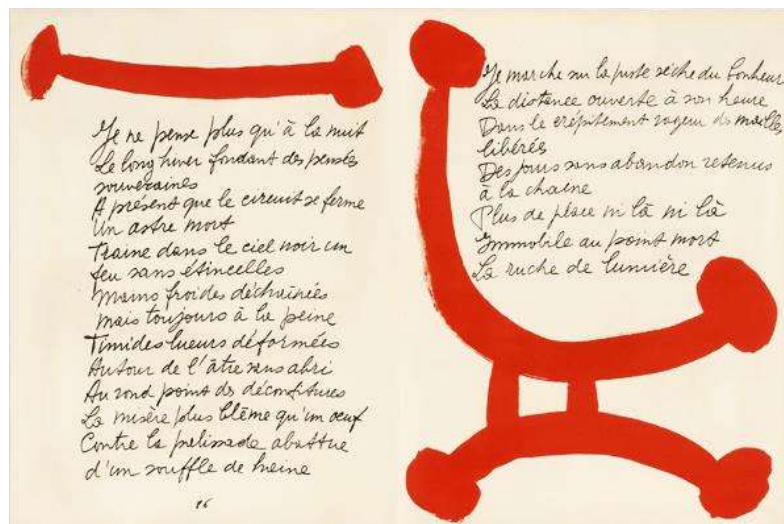 Je ne pense plus qu'à la nuit
Le long hiver fondant des pensées
souveraines
A présent que le circuit se ferme
Un astre mort
Traine dans le ciel noir un
feu sans étincelles
Mains froides déchainées
Mais toujours à la peine
Timides lueurs déformées
Autour de l'âtre sans abri
Au rond point des déconfitures
La misère plus blême qu'un oeuf
Contre la palissade abattue
d'un souffle de haine
96
Je marche sur la piste sèche du bonheur
La distance ouverte à son heure
Dans le crépitement rageur des mailles
libérés
Des jours sans abandon retenus
à la chaine
Plus de place ni là ni là
Immobile au point mort
La ruche de lumière